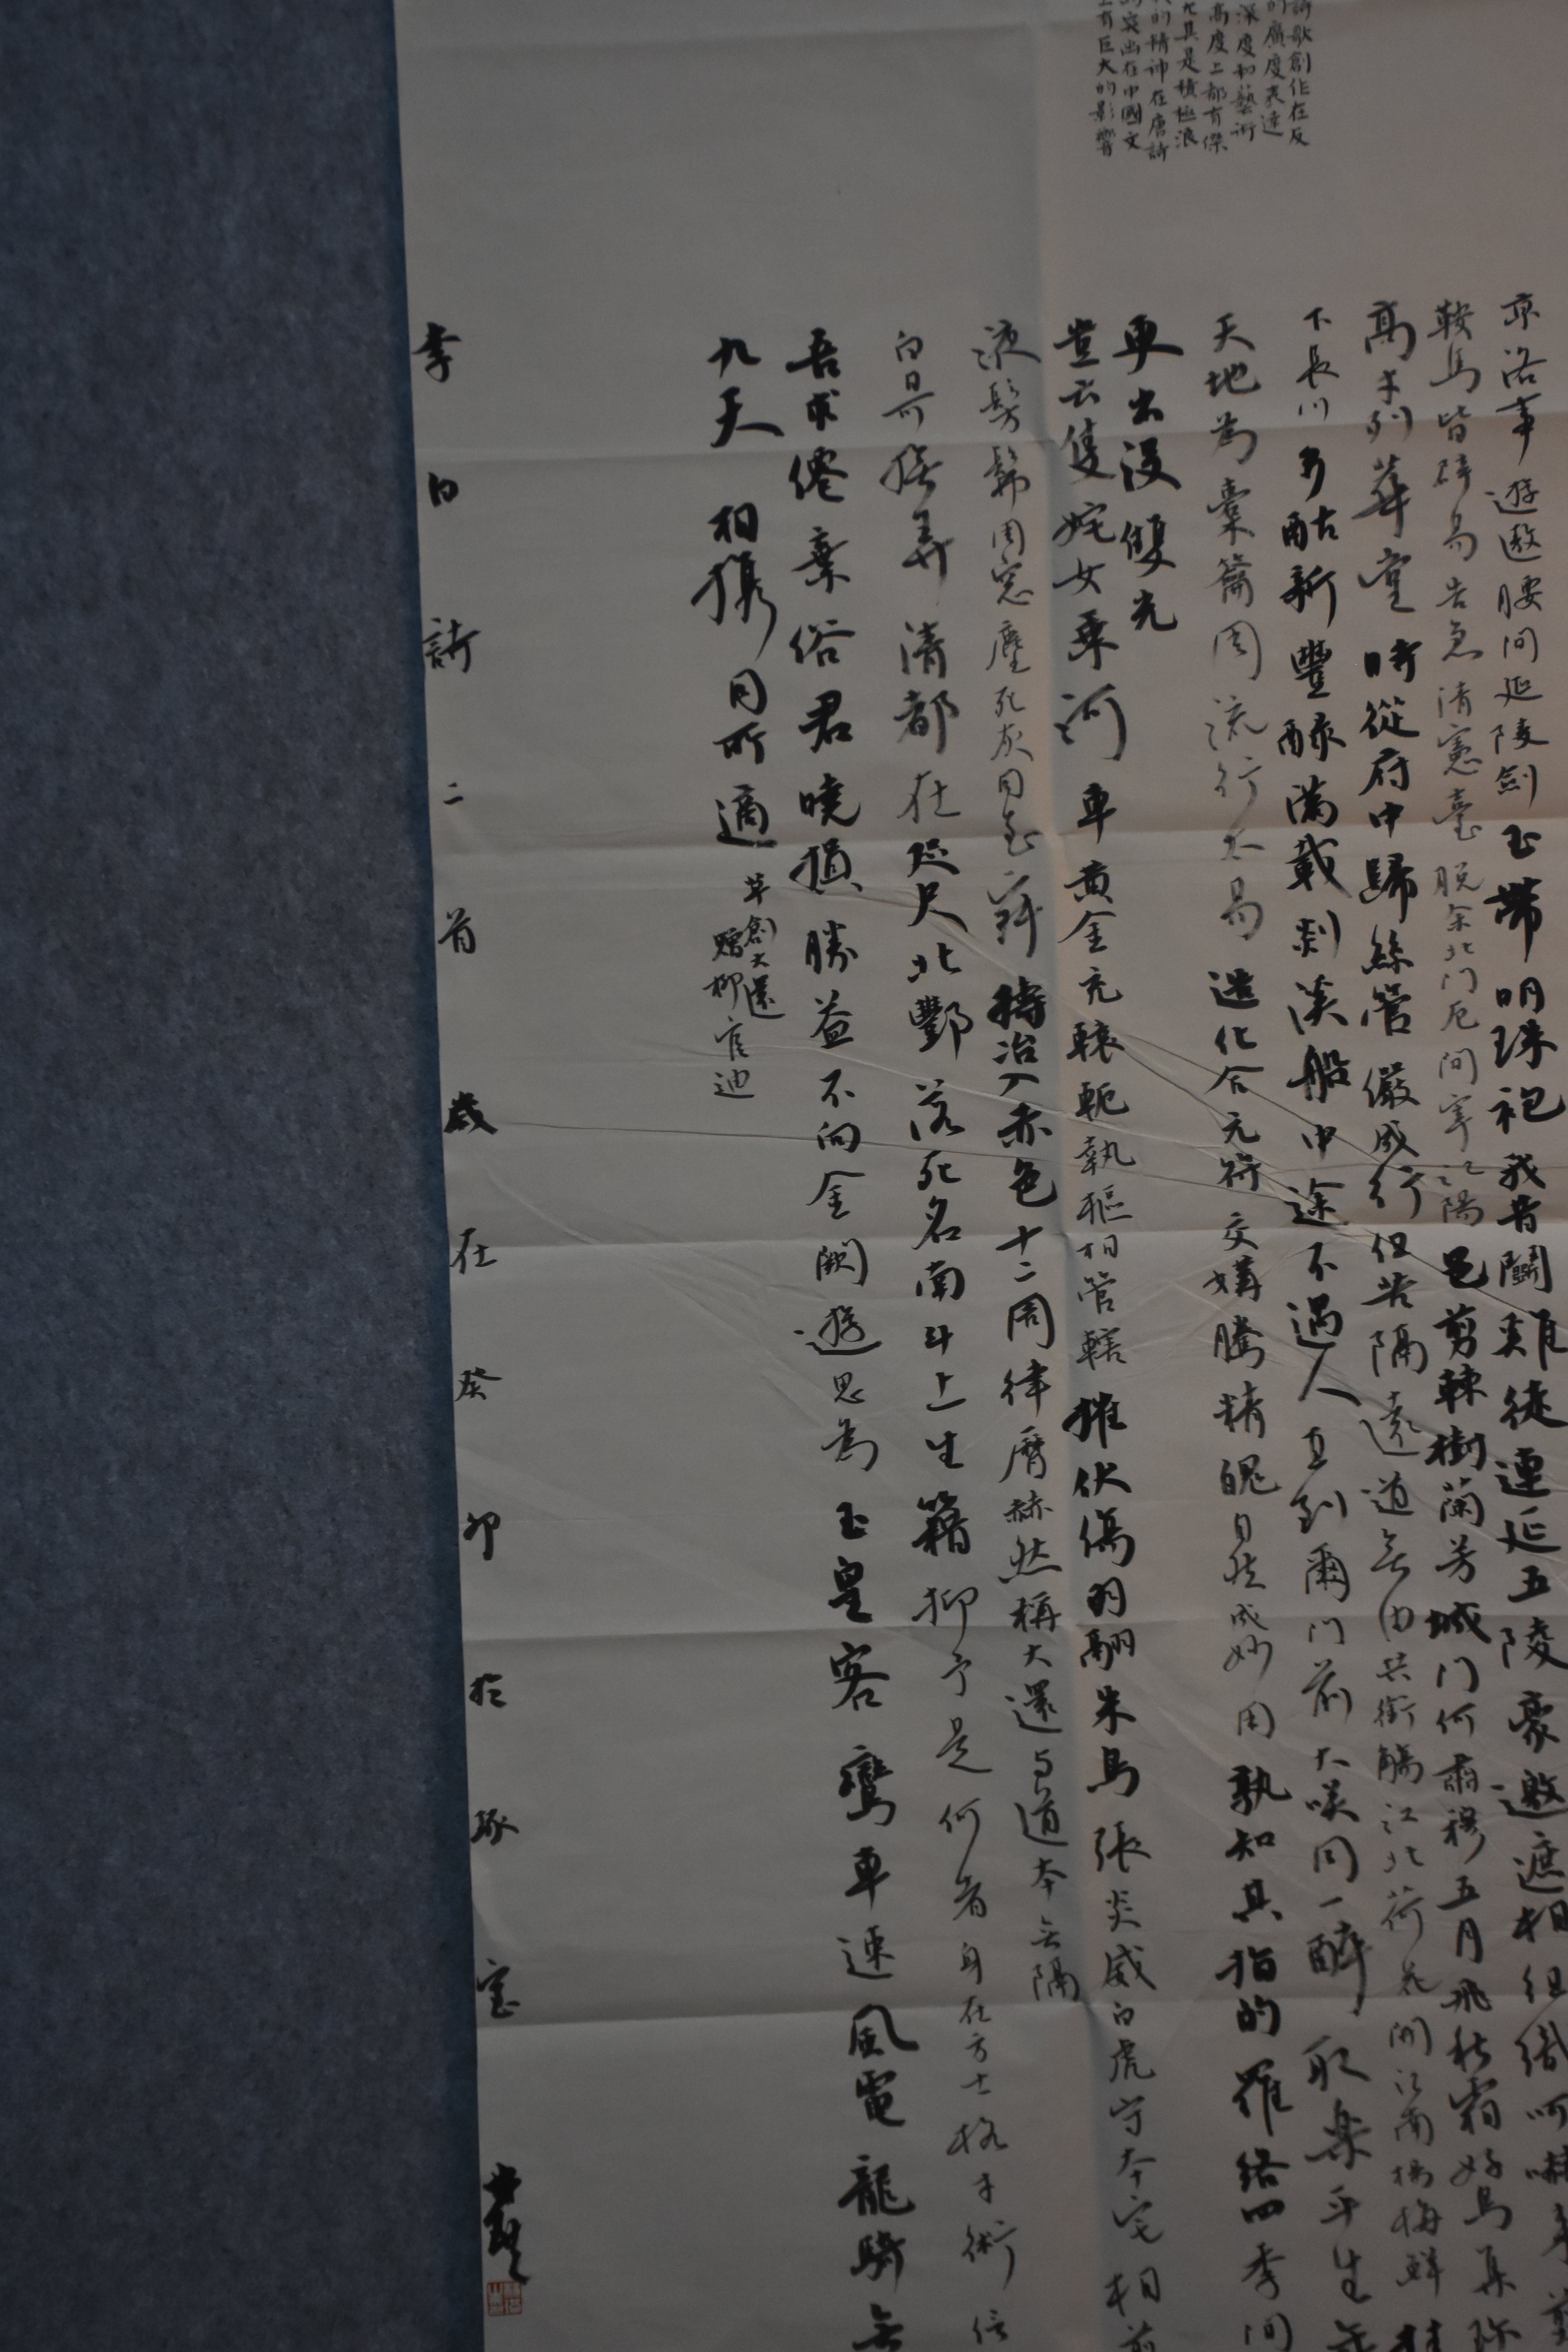 詩歌創作在反
的廣度表達
深度和藝術
高度上都有傑
尤其是積極浪
的精神在唐詩
突出在中國文
上有巨大的影響
京洛事遊遨腰間延陵劍玉帶明珠袍我昔鬪雞徒連延五陵豪邀遮相組織呵嚇來
鞍馬皆辟易告急清憲臺脫余北门厄間宰江陽邑剪棘樹蘭芳城门何肅穆五月飛秋霜好鳥集珍
高才列華堂時從府中歸絲管儼成行但苦隔遠道無由共銜觴江北荷花開江南楊梅鮮
下長川多酤新豐醁滿載剡溪船中途不遇人直到爾门前大咲同一醉取樂平生年
天地為橐籥周流行太易造化合元符交媾騰精魄自然成妙用孰知其指的羅絡四季間
更出没雙光
豈云隻姹女乘河車黄金充轅軛執樞相管轄摧伏傷羽翮朱鳥張炎威白虎守本宅相煎
液髣髴明窓塵死灰同至寂擣冶入赤色十二周律曆赫然稱大還与道本无隔
白日可撫弄清都在咫尺北酆落死名南斗上生籍抑予是何者身在方士格才術信
吾求僊棄俗君曉損勝益不向金闕遊思為玉皇客鸞車速風電龍騎無
九天相攜同所適
草創大還
贈柳官迪
李白詩二首歲在癸卯於琢室